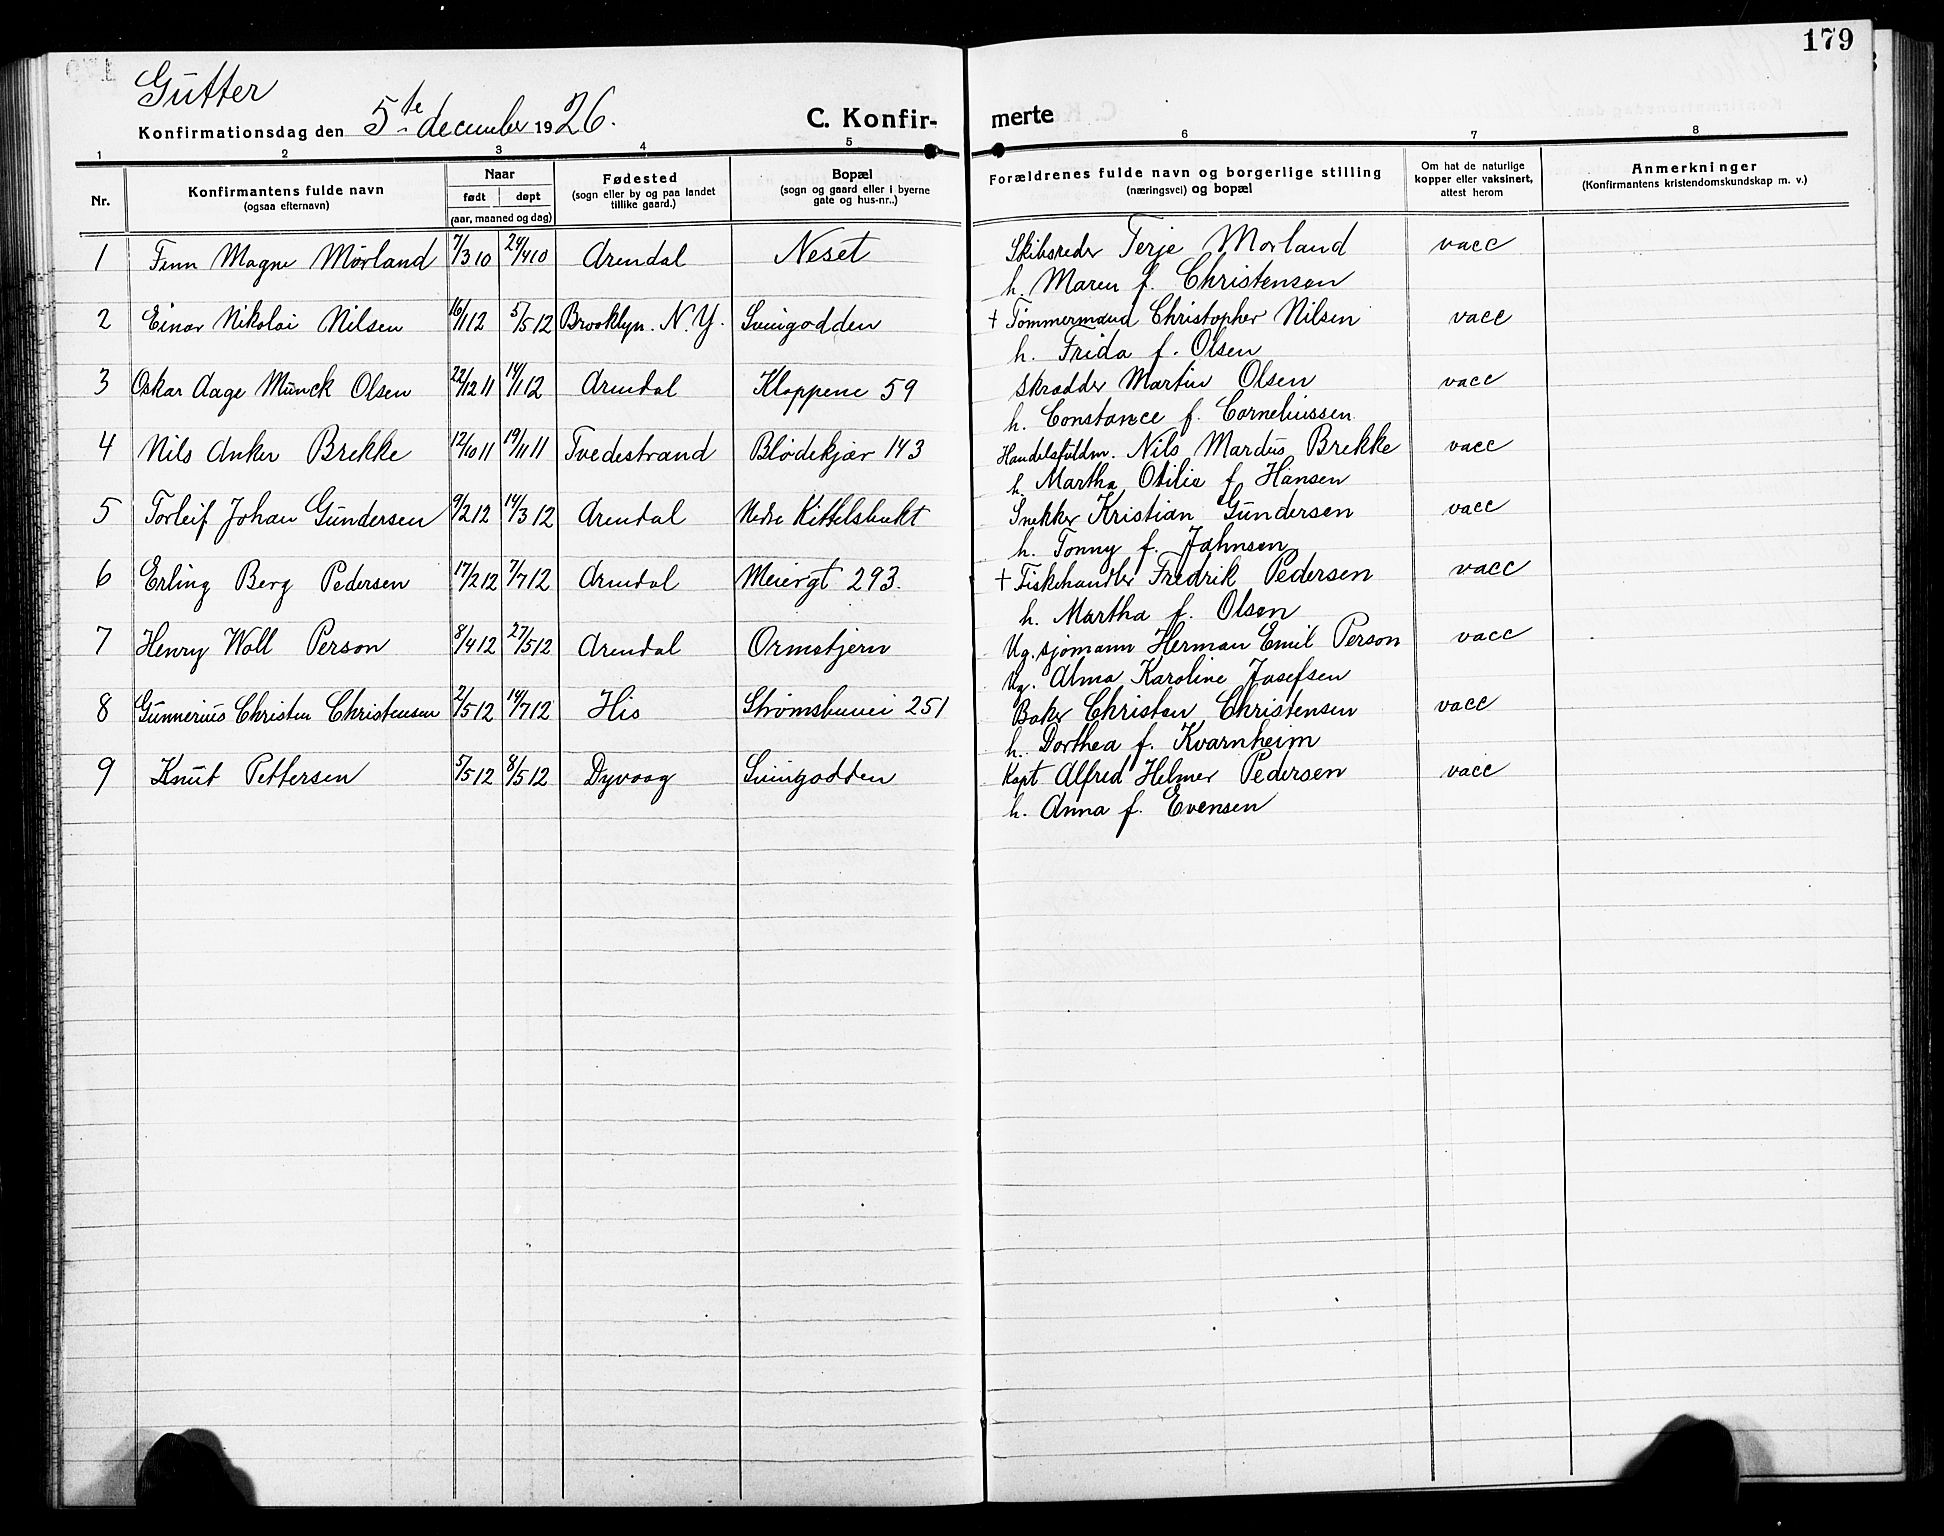 179
Gutter
Konfirmationsdag den 5te december 1926.
C. Konfirmerte
1 2 3 4 5 6 7 8
Nr.
Konfirmantens fulde navn (ogsaa efternavn)
Naar født døpt (aar, maaned og dag)
Fødested (sogn eller by og paa landet tillike gaard.)
Bopæl (sogn og gaard eller i byerne gate og hus-nr..)
Forældrenes fulde navn og borgerlige stilling (næringsvei) og bopæl
Om hat de naturlige kopper eller vaksinert, attest herom
Anmerkninger (Konfirmantens kristendomskundskap m. v.)
1 Finn Magne Mørland 7/3 10 24/4 10 Arendal Neset Skibsreder Terje Mørland vacc
h. Maren f. Christensen
2 Einar Nikolai Nilsen 16/1 12 5/5 12 Brooklyn. N.Y. Svinodden + Tømmermand Christopher Nilsen vacc
h. Frida f. Olsen
3 Oskar Aage Munck Olsen 22/12 11 14/1 12 Arendal Kloppene 59 Skrædder Martin Olsen vacc
h. Constance f. Corneliussen
4 Nils Anker Brekke 12/10 11 19/11 11 Tvedestrand Blødekjær 143 Handelsfuldm. Nils Mardus Brekke vacc
h. Martha Otilie f Hansen
5 Torleif Johan Gundersen 9/2 12 14/3 12 Arendal Nedre Kittelsbukt Snekker Kristian Gundersen vacc
h. Tonny f. Johnsen
6 Erling Berg Pedersen 17/2 12 7/7 12 Arendal Meiergt 293. + Fiskehandler Fredrik Pedersen vacc
h. Martha f. Olsen
7 Henry Woll Person 8/4 12 27/5 12 Arendal Ormetjern Ug. sjømann Herman Emil Person vacc
Ug. Alma Karoline Josefsen
8 Gunnerius Christen Christensen 2/5 12 14/7 12 His Strømsbuvei 251 Baker Christen Christensen vacc
h. Dorthea f. Kvarnheim
9 Knut Pettersen 5/5 12 8/5 12 Dyvaag Kapt Alfred Helmer Pedersen vacc
h. Anna f. Evensen